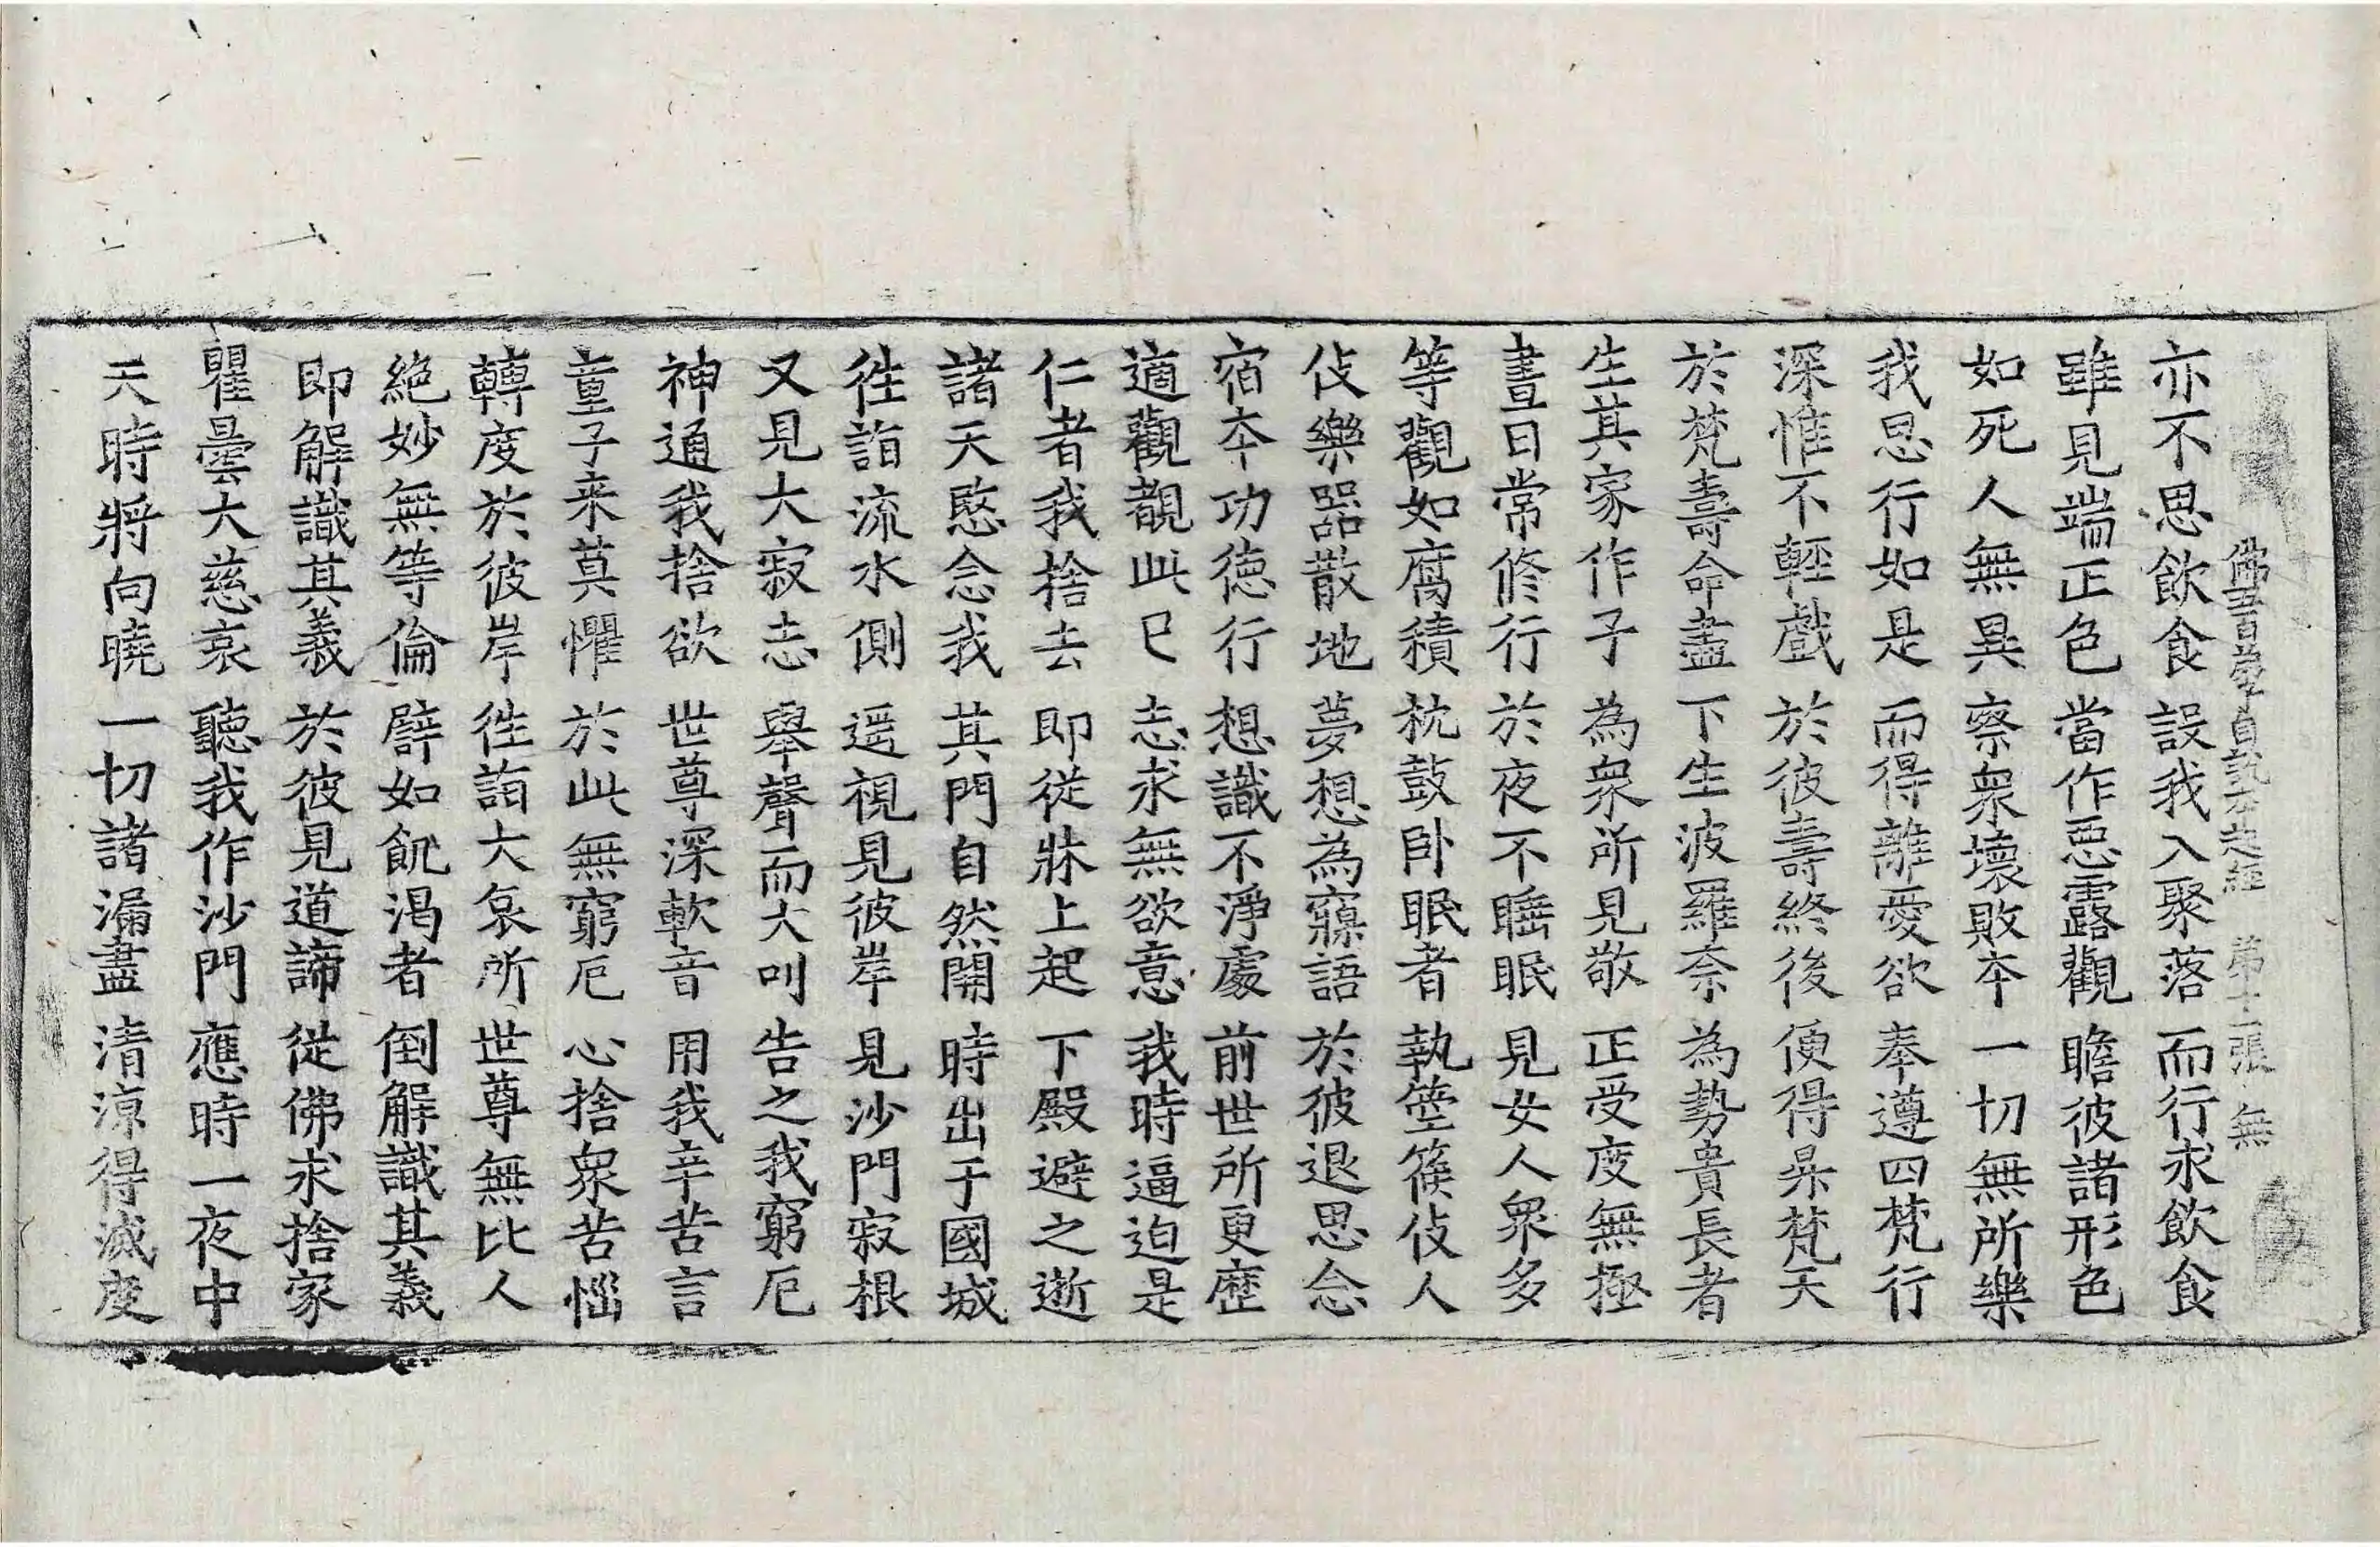 佛五百弟子自說本起經 第十二張 無
亦不思飲食 設我入聚落 而行求飲食
雖見端正色 當作惡露觀 瞻彼諸形色
如死人無異 察衆壞敗夲 一切無所樂
我思行如是 而得離愛欲 奉遵四梵行
深惟不輕戲 於彼壽終後 便得昇梵天
於梵壽命盡 下生波羅奈 為勢貴長者
生其家作子 為衆所見敬 正受度無極
晝日常修行 於夜不睡眠 見女人衆多
等觀如腐積 枕鼓卧眠者 執箜篌伎人
伎樂器散地 夢想為寱語 於彼退思念
宿夲功德行 想識不淨處 前世所更歷
適觀覩此已 志求無欲意 我時逼迫是
仁者我捨去 即從牀上起 下殿避之逝
諸天愍念我 其門自然開 時出于國城
徃詣流水側 遥視見彼岸 見沙門寂根
又見大寂志 舉聲而大叫 告之我窮厄
神通我捨欲 世尊深軟音 用我辛苦言
童子来莫懼 於此無窮厄 心捨衆苦惱
轉度於彼岸 徃詣大哀所 世尊無比人
絕妙無等倫 譬如飢渴者 倒解識其義
即解識其義 於彼見道諦 從佛求捨家
瞿曇大慈哀 聽我作沙門 應時一夜中
天時將向曉 一切諸漏盡 清涼得滅度